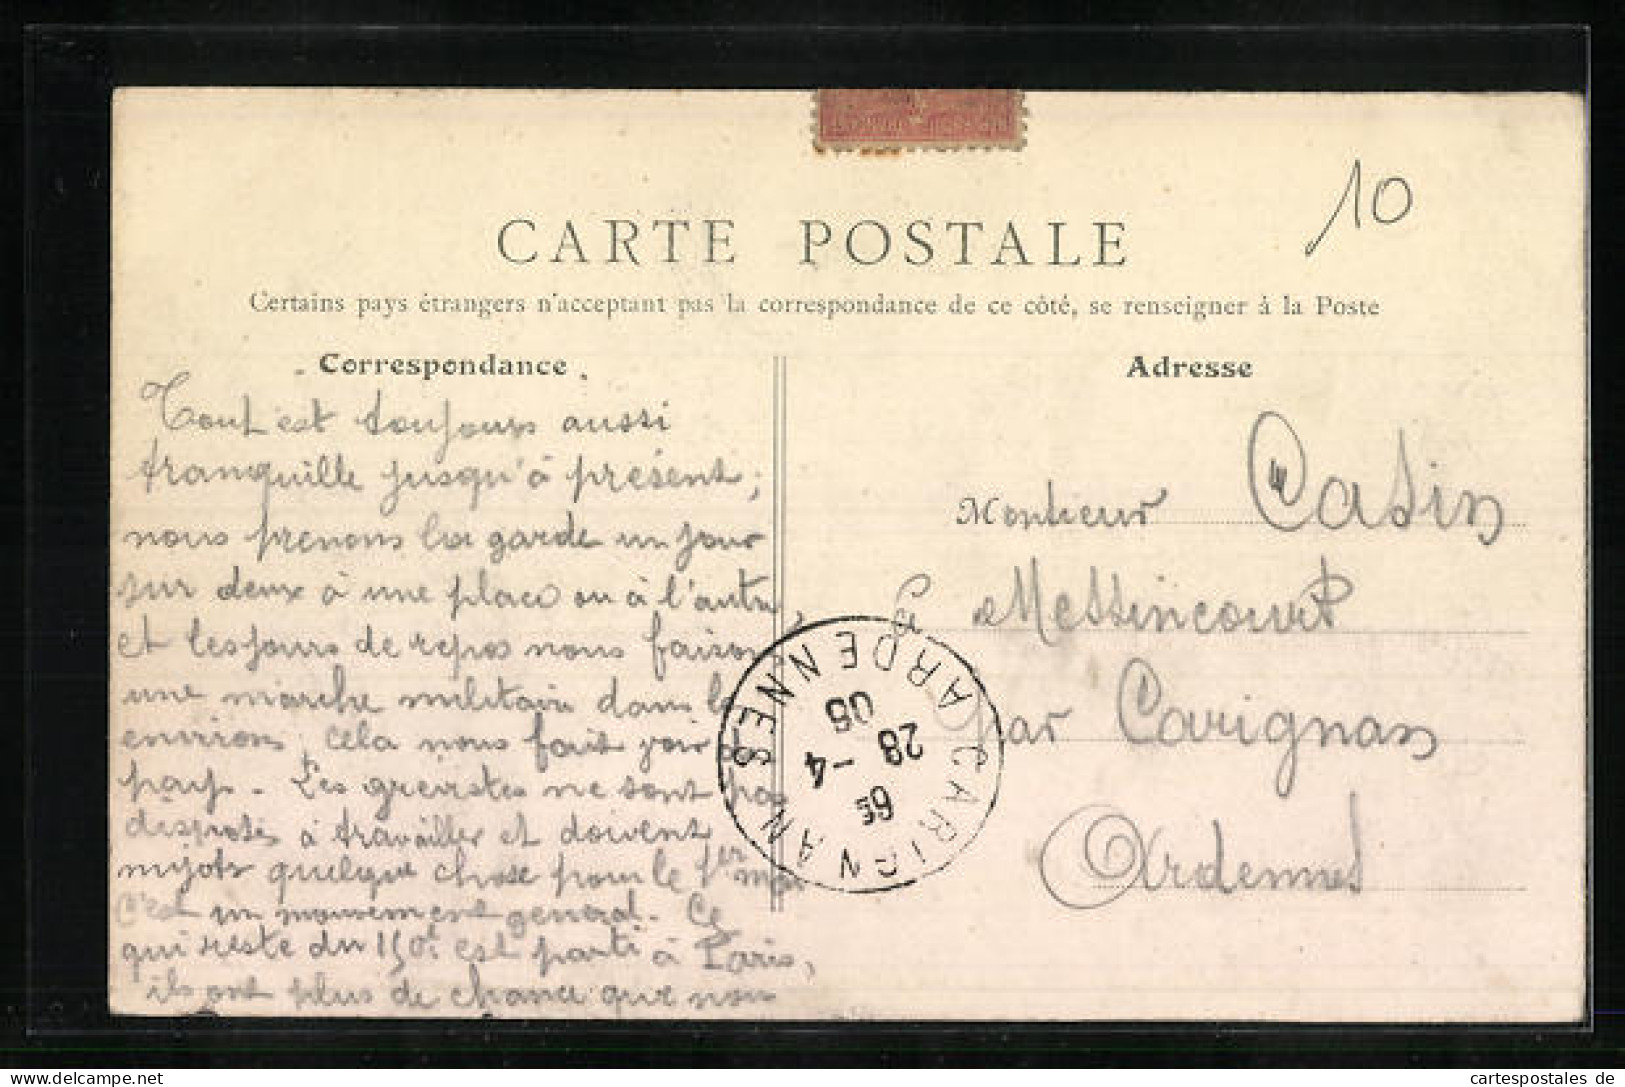 10
CARTE POSTALE
Certains pays étrangers n'acceptant pas la correspondance de ce côté, se renseigner à la Poste
Correspondance
Tout est toujours aussi
tranquille jusqu'à présent,
nous prenons la garde un jour
sur deux à une place ou à l'autre,
et les jours de repos nous faisons
une marche militaire dans les
environs, cela nous fait voir du
pays. Les greivstes ne sont pas
disposés à travailler et doivent
mijoter quelque chose pour le 1er mai
C'est un mouvement general. Ce
qui reste du 150e est parti à Paris,
ils ont plus de chance que nous
Adresse
Monsieur Casin
à Messincourt
par Carignan
Ardennes
CARIGNAN ARDENNES
6E
28 -4
06
cartespostales de